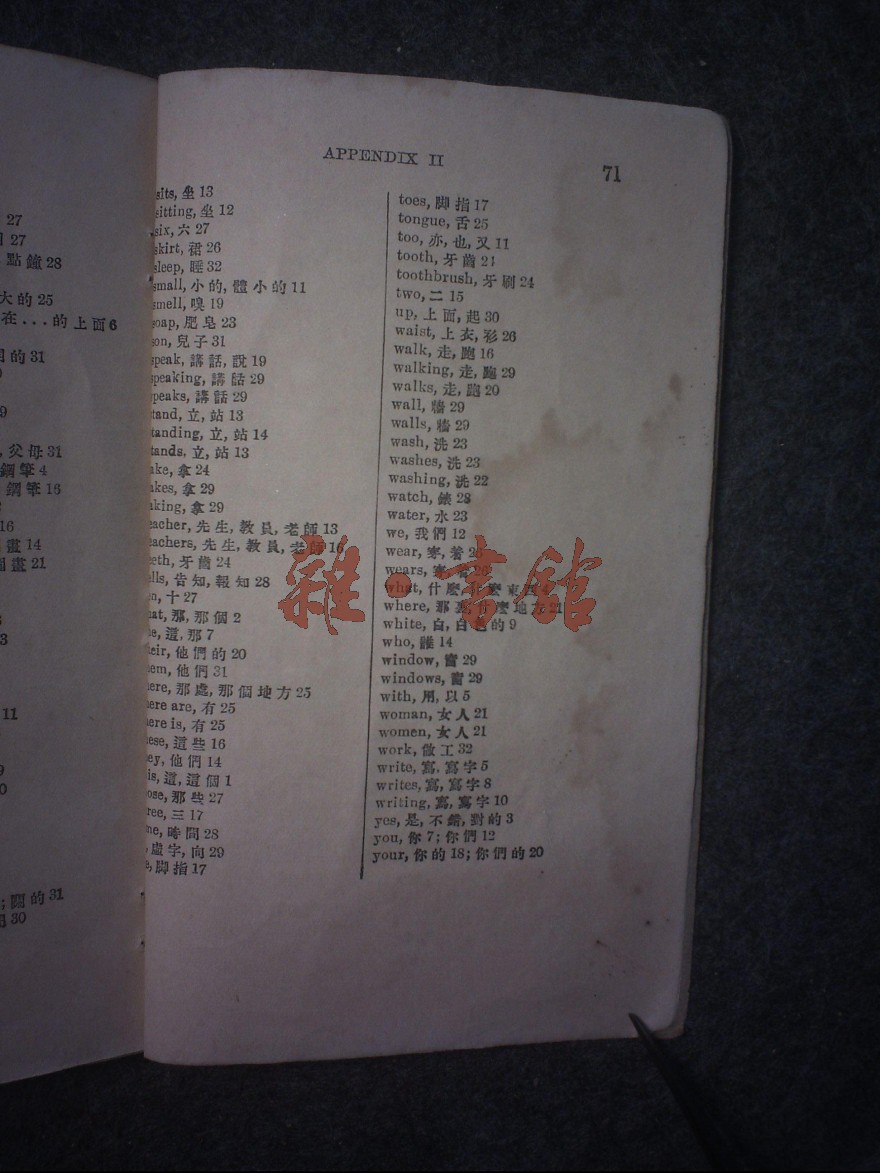 APPENDIX II
71
27
27
點鐘 28
大的 25
在...的上面 6
的 31
9
父母 31
鋼筆 4
鋼筆 16
16
畫 14
畫 21
3
11
9
0
的 31
30
sits, 坐 13
sitting, 坐 12
six, 六 27
skirt, 裙 26
sleep, 睡 32
small, 小的, 體小的 11
smell, 嗅 19
soap, 肥皂 23
son, 兒子 31
speak, 講話, 說 19
speaking, 講話 29
speaks, 講話 29
tand, 立, 站 13
tanding, 立, 站 14
tands, 立, 站 13
ake, 拿 24
akes, 拿 29
aking, 拿 29
eacher, 先生, 教員, 老師 13
eachers, 先生, 教員, 老師 16
eeth, 牙齒 24
ells, 告知, 報知 28
n, 十 27
at, 那, 那個 2
e, 這, 那 7
eir, 他們的 20
em, 他們 31
ere, 那處, 那個地方 25
ere are, 有 25
ere is, 有 25
ese, 這些 16
ey, 他們 14
is, 這, 這個 1
ose, 那些 27
ree, 三 17
me, 時間 28
, 虛字, 向 29
e, 脚指 17
toes, 脚指 17
tongue, 舌 25
too, 亦, 也, 又 11
tooth, 牙齒 24
toothbrush, 牙刷 24
two, 二 15
up, 上面, 起 30
waist, 上衣, 衫 26
walk, 走, 跑 16
walking, 走, 跑 29
walks, 走, 跑 20
wall, 牆 29
walls, 牆 29
wash, 洗 23
washes, 洗 23
washing, 洗 22
watch, 錶 28
water, 水 23
we, 我們 12
wear, 穿, 着 26
wears, 穿, 着 26
what, 什麼, 什麼東西 4
where, 那裏, 什麼地方 21
white, 白, 白色的 9
who, 誰 14
window, 窗 29
windows, 窗 29
with, 用, 以 5
woman, 女人 21
women, 女人 21
work, 做工 32
write, 寫, 寫字 5
writes, 寫, 寫字 8
writing, 寫, 寫字 10
yes, 是, 不錯, 對的 3
you, 你 7; 你們 12
your, 你的 18; 你們的 20
雜·書館